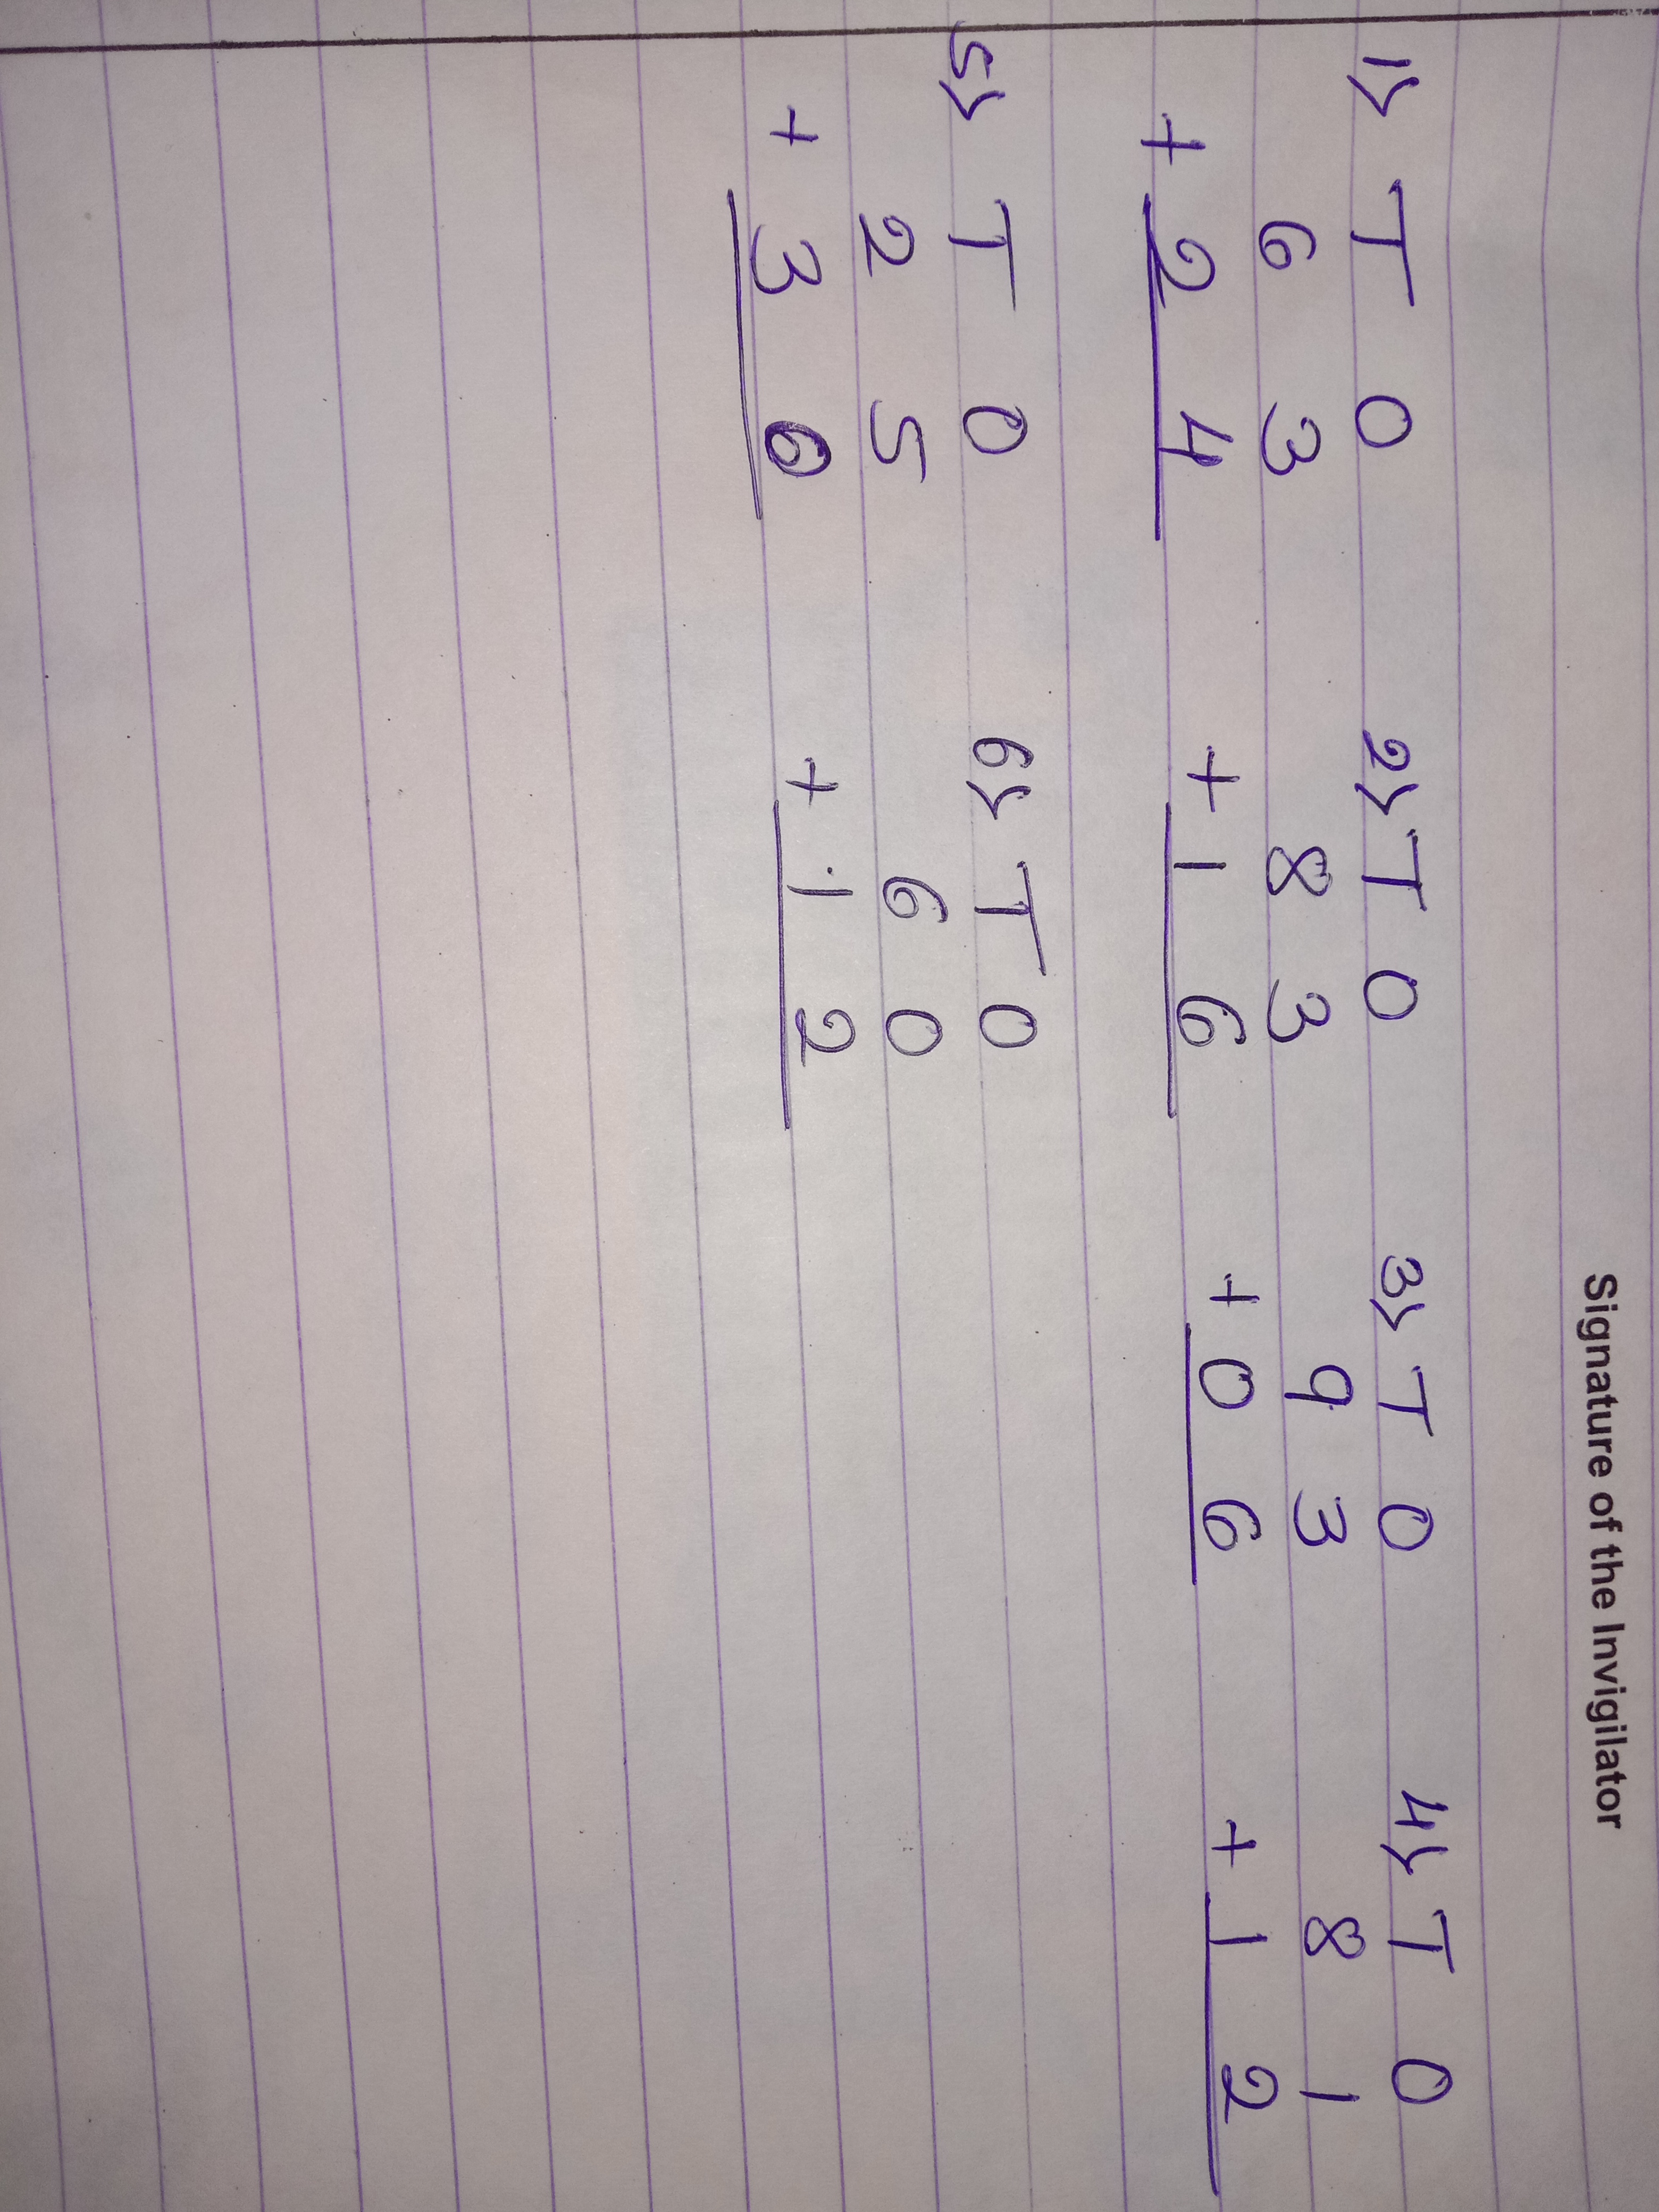 Signature of the Invigilator
1) T O 2) T O 3) T O 4) T O
6 3 8 3 9 3 8 1
+ 2 4 + 1 6 + 0 6 + 1 2
5) T O 6) T O
2 5 6 0
+ 3 + 1 2